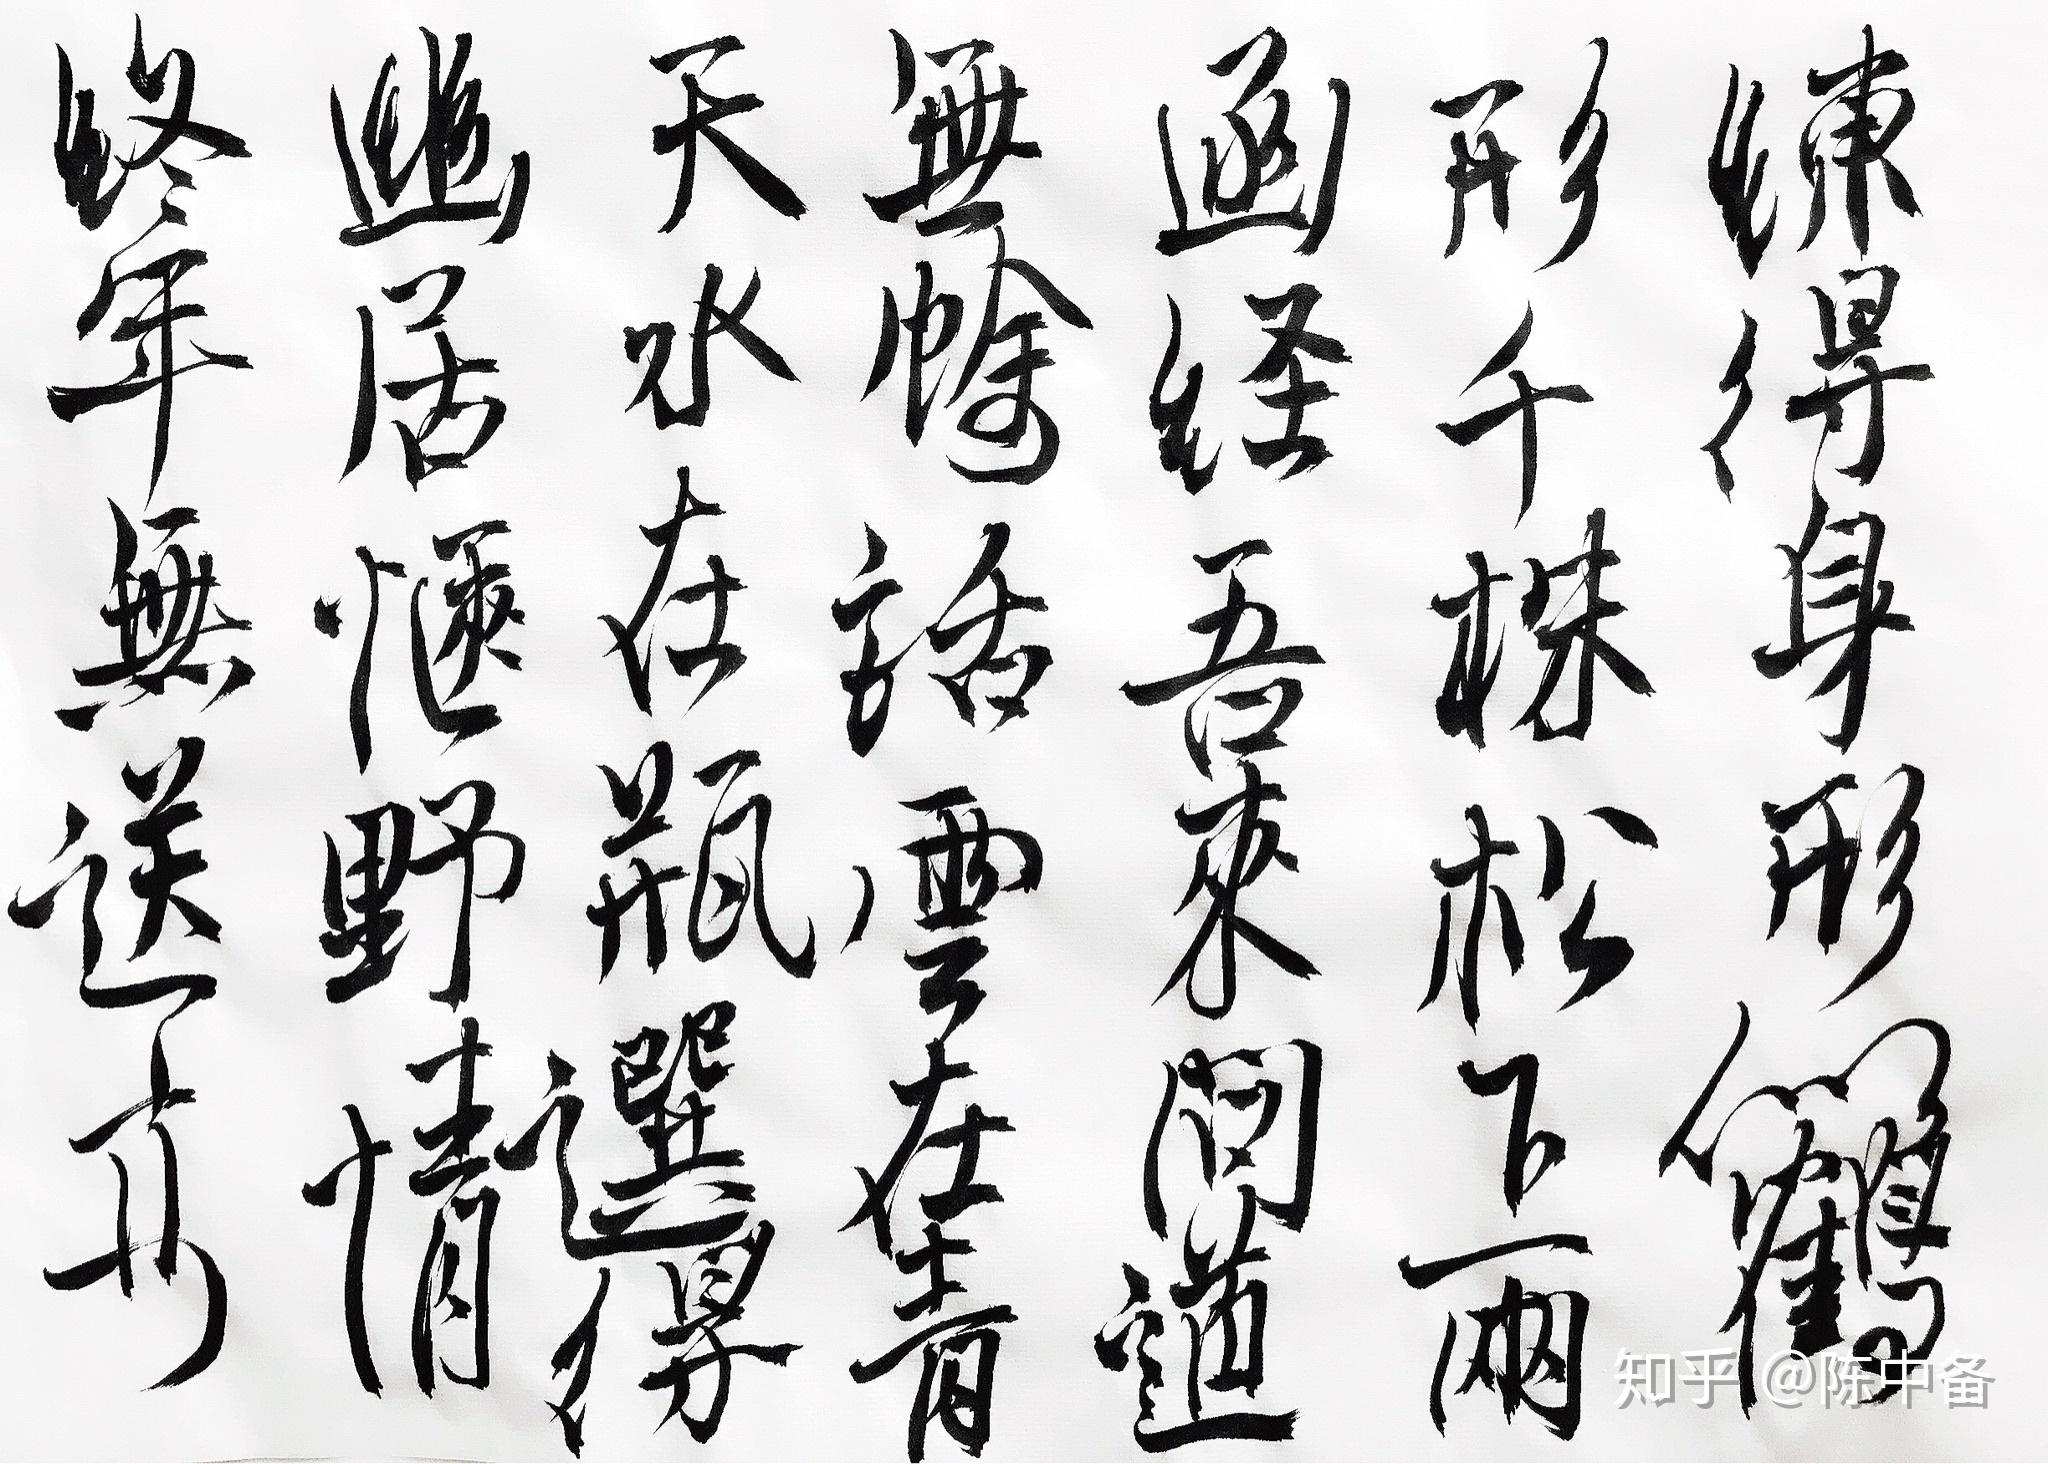 練得身形似鶴
形千株松下兩
函经吾來問道
無餘話雲在青
天水在瓶選得
幽居愜野情
終年無送亦
知乎 @陈中备